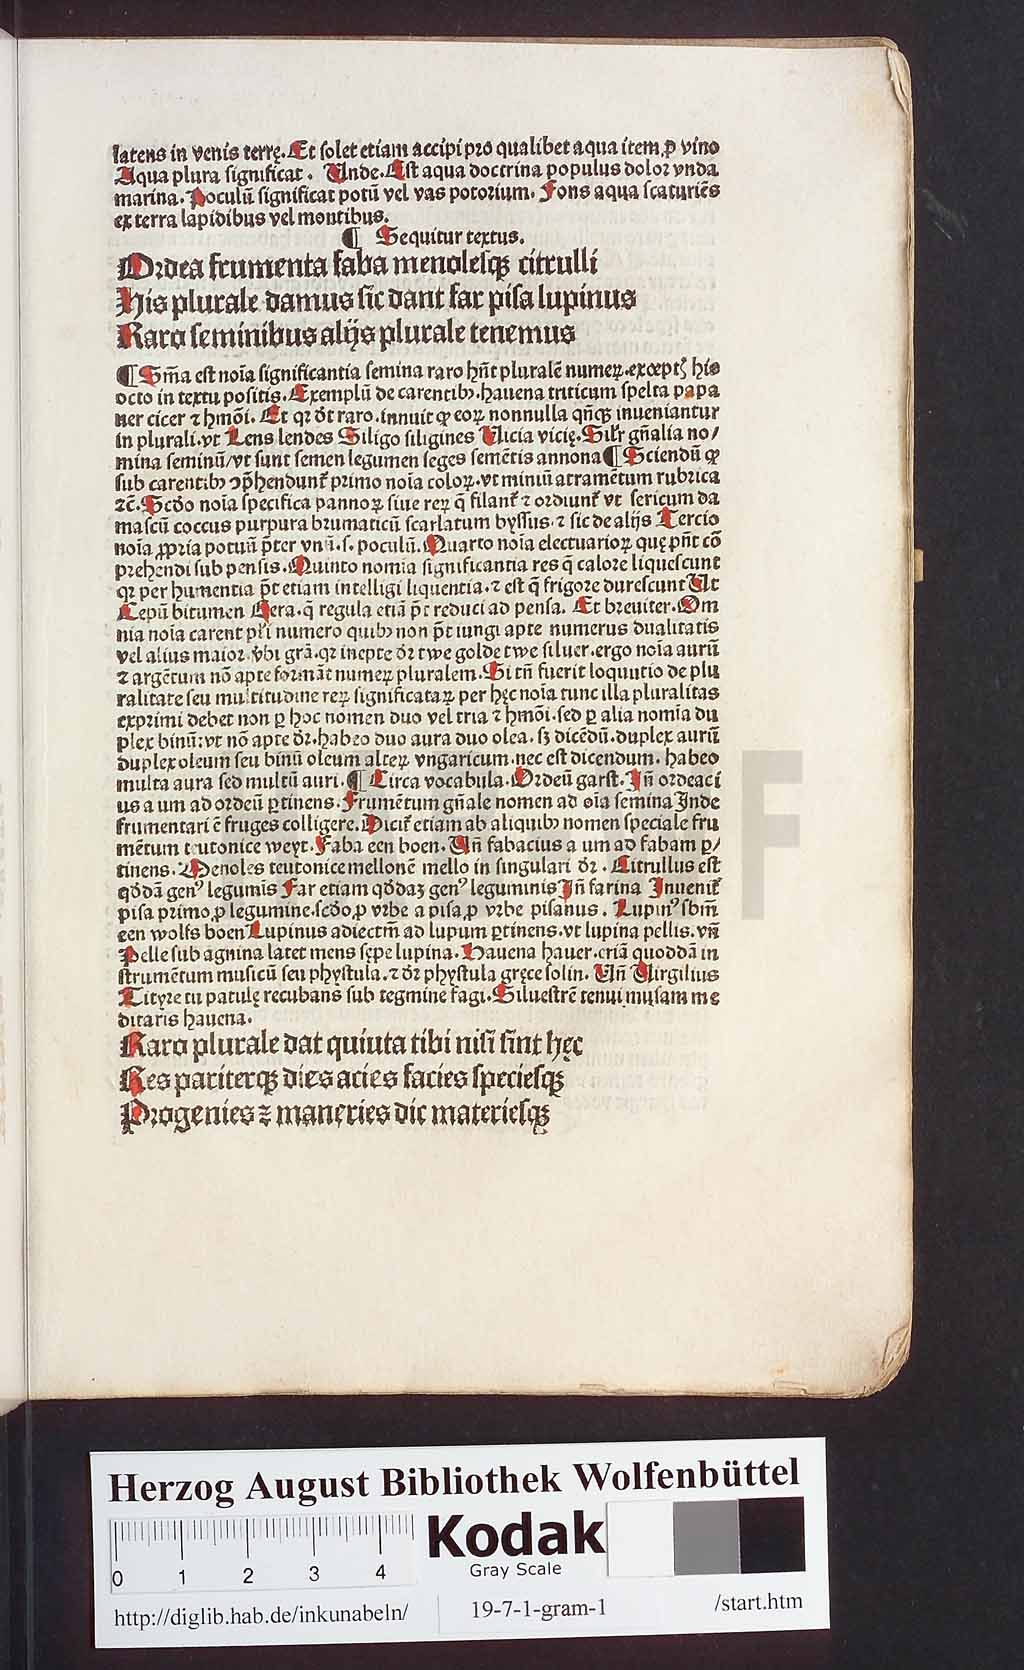 latens in venis terrę. Et solet etiam accipi pro qualibet aqua item, ꝓ vino
Aqua plura significat. Unde. Est aqua doctrina populus dolor vnda
marina. Poculū significat potū vel vas potorium. Fons aqua scaturiēs
ex terra lapidibus vel montibus.
¶ Sequitur textus.
Ordea frumenta faba menolesqꝫ citrulli
His plurale damus sic dant far pisa lupinus
Raro seminibus alijs plurale tenemus
¶ Sm̄a est noīa significantia semina raro hn̄t pluralē numeꝝ. exceptꝭ his
octo in textu positis. Exemplū de carentibꝰ. hauena triticum spelta papa
uer cicer ⁊ hmōi. Et qꝛ dt̄ raro. innuit ꝙ eoꝝ nonnulla qn̄qꝫ inueniantur
in plurali. vt Lens lendes Siligo siligines Vicia vicię. Silr̄ gn̄alia no/
mina seminū/vt sunt semen legumen seges semētis annona ¶ Sciendū ꝙ
sub carentibꝰ ꝯp̄hendunt̄ primo noīa coloꝝ. vt miniū atramētum rubrica
⁊c̄. Scd̄o noīa specifica pannoꝝ siue reꝝ q̄ filant̄ ⁊ ordiunt̄ vt sericum da
mascū coccus purpura brumaticū scarlatum byssus. ⁊ sic de alijs Tercio
noīa ꝓpria potuū p̄ter vnū. s. poculū. Quarto noīa electuarioꝝ quę pn̄t cō
prehendi sub pensis. Quinto nomīa significantia res q̄ calore liquescunt
qꝛ per humentia p̄t etiam intelligi liquentia. ⁊ est q̄ frigore durescunt Ut
Cepū bitumen Cera. q̄ regula etiā p̄t reduci ad pensa. Et breuiter. Om
nia noīa carent pl̄i numero quibꝰ non p̄t iungi apte numerus dualitatis
vel alius maior. vbi grā. qꝛ inepte dr̄ twe golde twe siluer. ergo noīa aurū
⁊ argētum nō apte formāt numeꝝ pluralem. Si tn̄ fuerit loquutio de plu
ralitate seu multitudine reꝝ significataꝝ per hęc noīa tunc illa pluralitas
exprimi debet non ꝑ hoc nomen duo vel tria ⁊ hmōi. sed ꝑ alia nomīa du
plex binū: vt nō apte dr̄. habeo duo aura duo olea. sꝫ dicēdū. duplex aurū
duplex oleum seu binū oleum alteꝝ vngaricum. nec est dicendum. habeo
multa aura sed multū auri. ¶ Circa vocabula. Ordeū garst. Jn̄ ordeaci
us a um ad ordeū ꝑtinens. Frumētum gn̄ale nomen ad oīa semina Jnde
frumentari ē fruges colligere. Dicit̄ etiam ab aliquibꝰ nomen speciale fru
mētum teutonice weyt. Faba een boen. Un̄ fabacius a um ad fabam ꝑ/
tinens. Menoles teutonice mellonē mello in singulari dr̄. Citrullus est
qd̄dā genꝰ legumīs Far etiam qd̄daꝫ genꝰ leguminis Jn̄ farina Jnuenit̄
pisa primo, ꝓ legumine. scd̄o, ꝓ vrbe a pisa, ꝓ vrbe pisanus. Lupinꝰ sbm̄
een wolfs boen Lupinus adiectm̄ ad lupum ꝑtinens. vt lupina pellis. vn̄
Pelle sub agnina latet mens sępe lupina. Hauena hauer. etiā quoddā in
strumētum musicū seu phystula. ⁊ dr̄ phystula gręce solin. Un̄ Virgilius
Tityre tu patulę recubans sub tegmine fagi. Siluestrē tenui musam me
ditaris hauena.
Raro plurale dat quiuta tibi nisi sint hęc
Res pariterqꝫ dies acies facies speciesqꝫ
Progenies ⁊ maneries dic materiesqꝫ
Herzog August Bibliothek Wolfenbüttel
Kodak
Gray Scale
0 1 2 3 4
http://diglib.hab.de/inkunabeln/ 19-7-1-gram-1 /start.htm